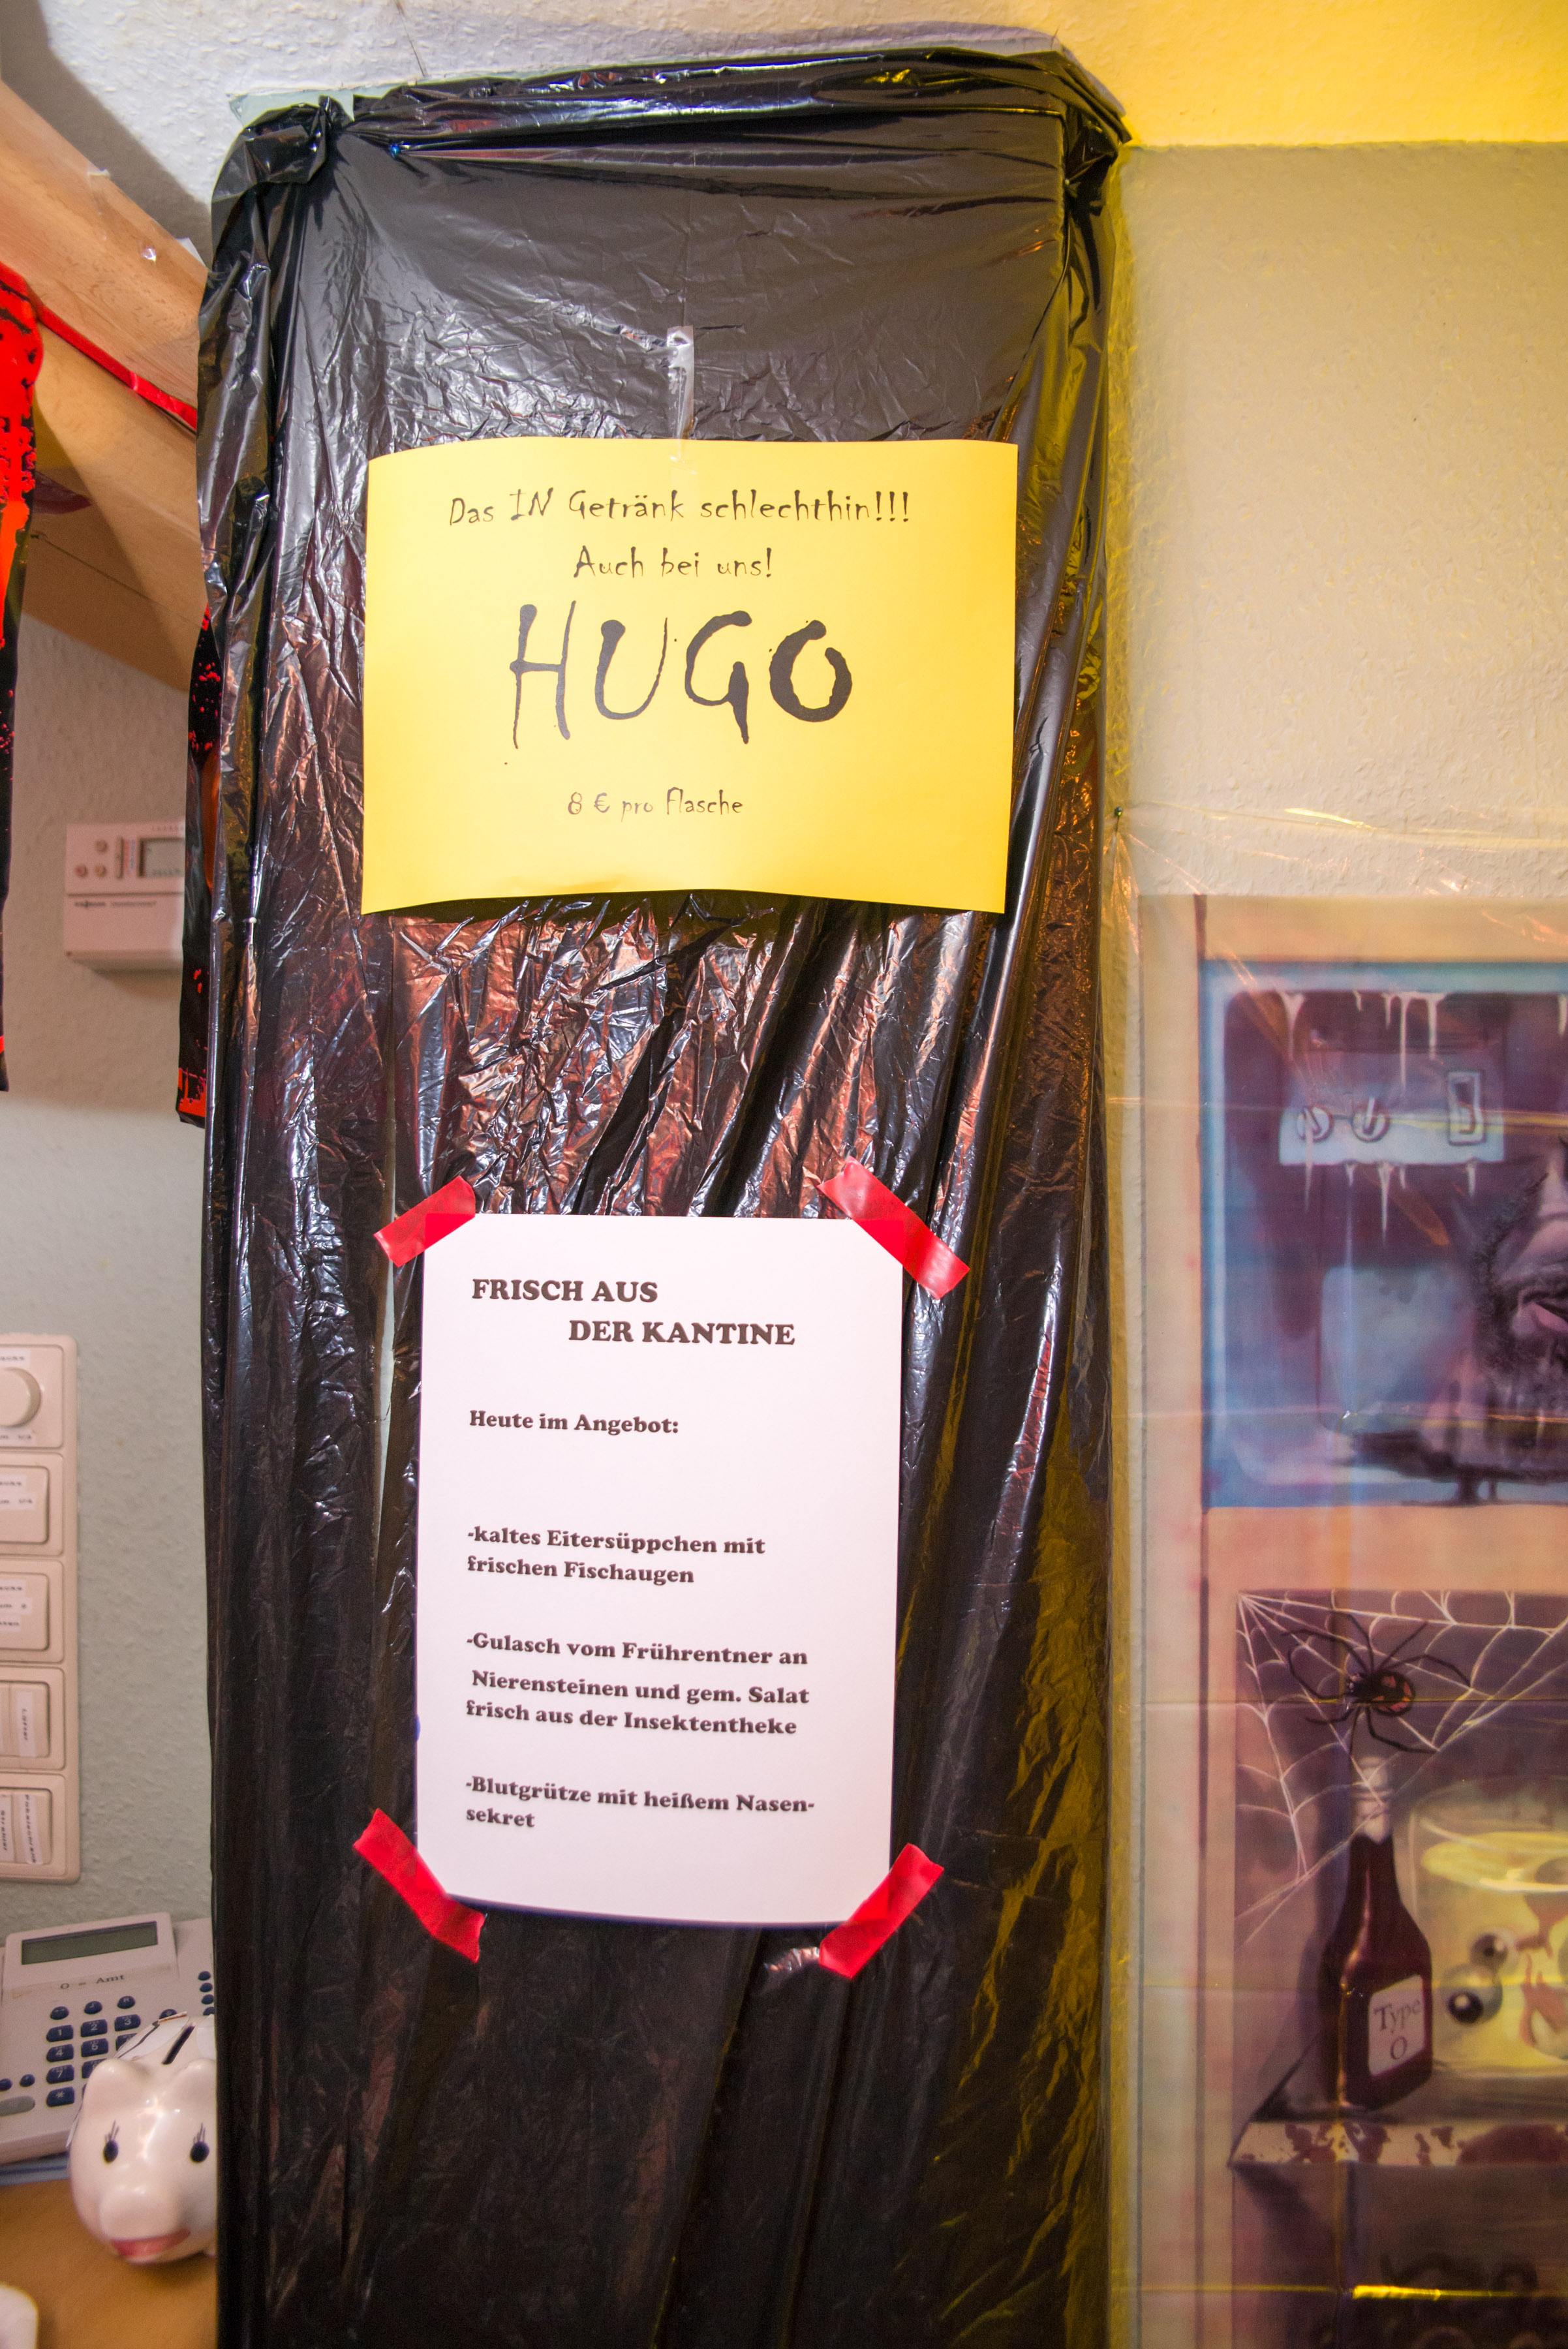 Das IN Getränk schlechthin!!!
Auch bei uns!
HUGO
8 € pro Flasche
FRISCH AUS
DER KANTINE
Heute im Angebot:
-kaltes Eitersüppchen mit
frischen Fischaugen
-Gulasch vom Frührentner an
Nierensteinen und gem. Salat
frisch aus der Insektentheke
-Blutgrütze mit heißem Nasen-
sekret
0 = Amt
1 2 3
4 5
7
Type
O